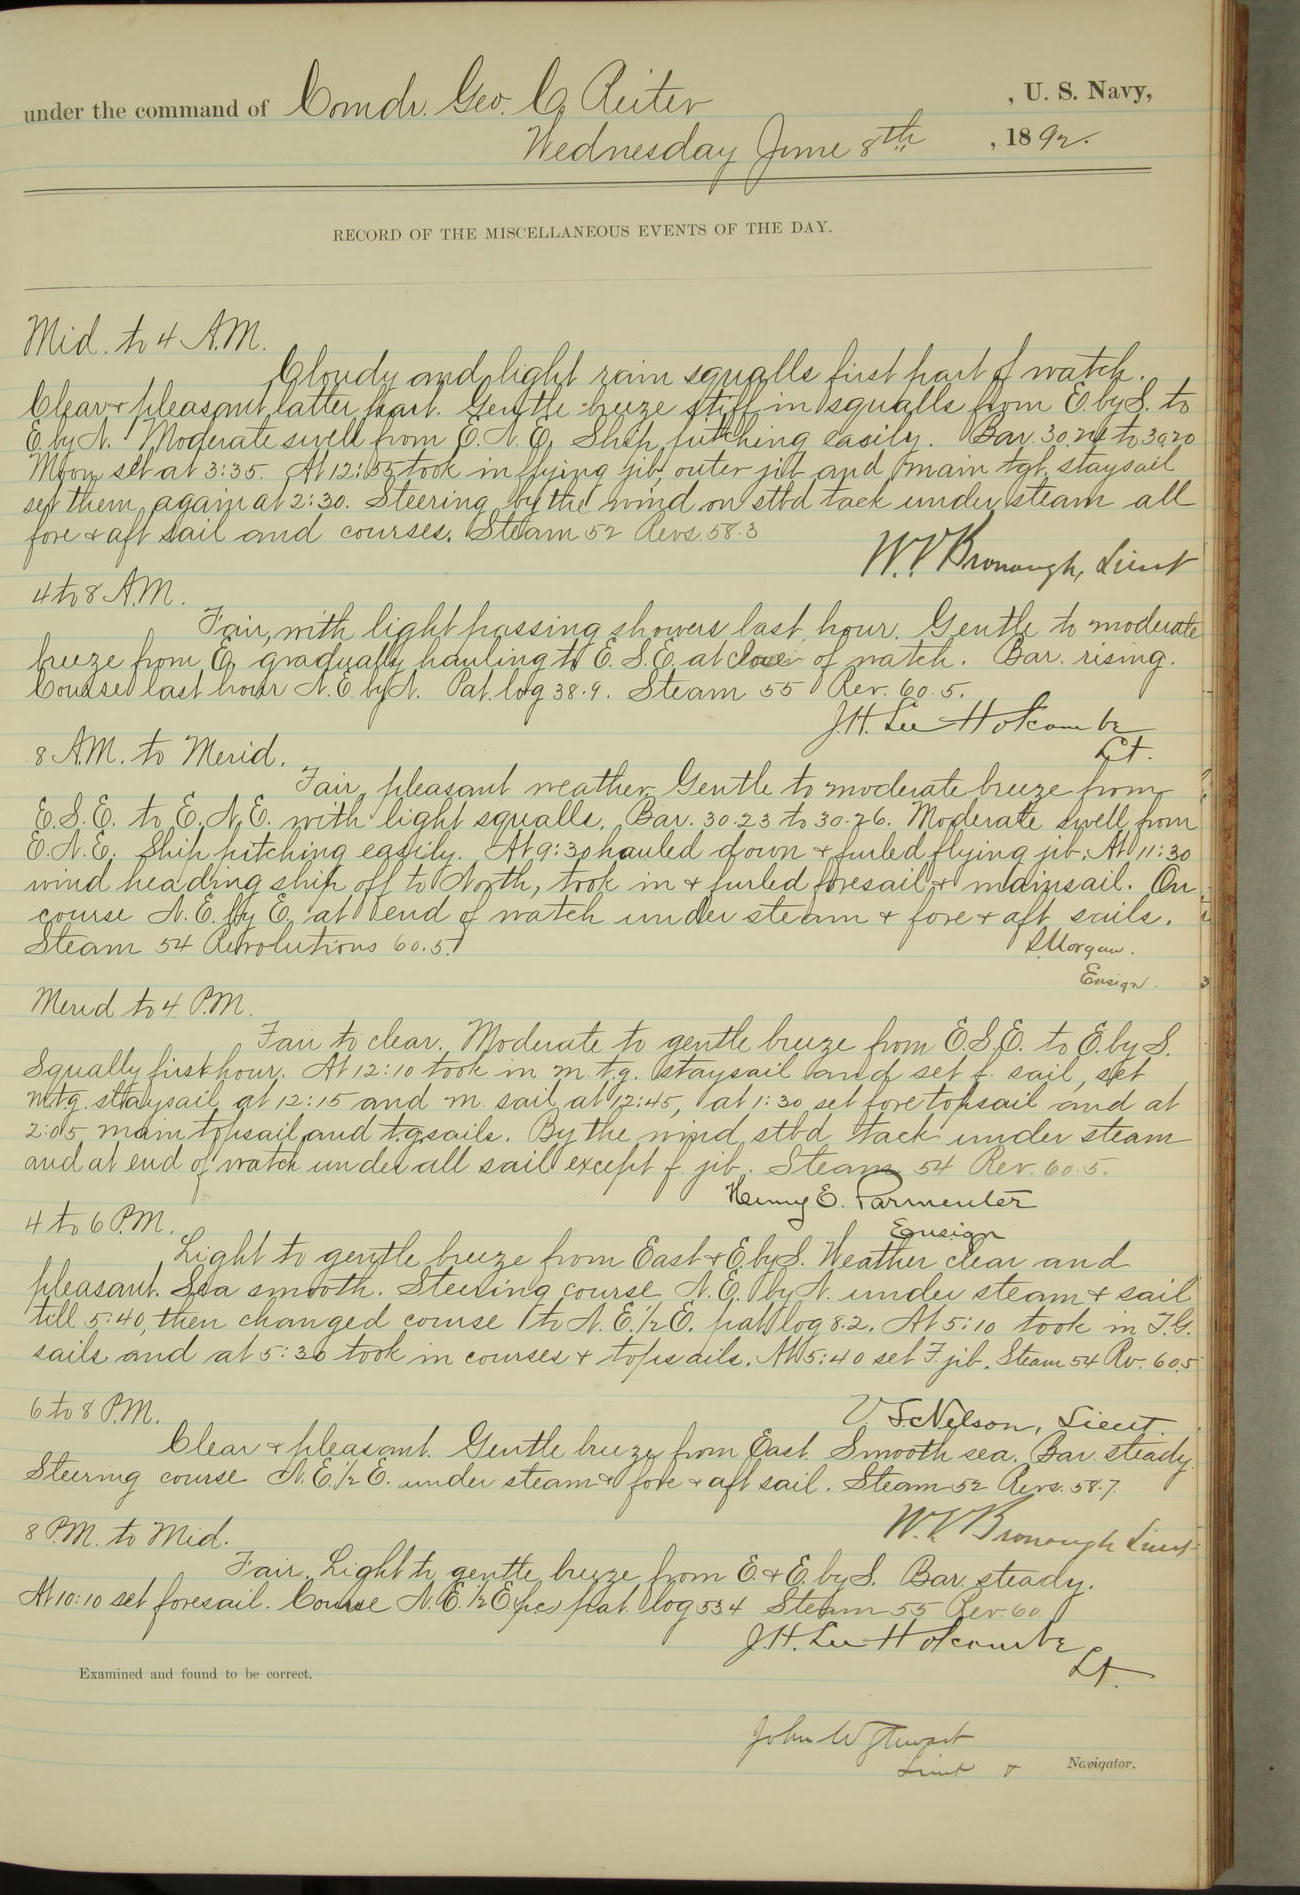 under the command of Comdr. Geo. C. Reiter, U. S. Navy,
Wednesday June 8th, 1892.
RECORD OF THE MISCELLANEOUS EVENTS OF THE DAY.
Mid. to 4 A.M.
Cloudy and light rain squalls first part of watch.
Clear & pleasant latter part. Gentle breeze stiff in squalls from E. by S. to
E. by N. Moderate swell from E.N.E. Ship pitching easily. Bar. 30.24 to 30.20
Moon set at 3:35. At 12:55 took in flying jib, outer jib and main tgt. staysail
set them again at 2:30. Steering by the wind on stbd tack under steam all
fore & aft sail and courses. Steam 52 Revs. 58.3
W. V. Bronaugh, Lieut
4 to 8 A.M.
Fair, with light passing showers last hour. Gentle to moderate
breeze from E. gradually hauling to E.S.E. at close of watch. Bar. rising.
Course last hour N.E. by N. Pat. log 38.9. Steam 55 Rev. 60.5.
J.H. Lee Holcombe
Lt.
8 A.M. to Merid.
Fair, pleasant weather. Gentle to moderate breeze from
E.S.E. to E.N.E. with light squalls. Bar. 30.23 to 30.26. Moderate swell from
E.N.E. Ship pitching easily. At 9:30 hauled down & furled flying jib. At 11:30
wind heading ship off to North, took in & furled foresail & mainsail. On
course N.E. by E. at end of watch under steam & fore & aft sails.
Steam 54 Revolutions 60.5.
Morgan.
Ensign.
Merid to 4 P.M.
Fair to clear. Moderate to gentle breeze from E.S.E. to E. by S.
Squally first hour. At 12:10 took in m.t.g. staysail and set f. sail, set
m.t.g. staysail at 12:15 and m. sail at 12:45, at 1:30 set fore topsail and at
2:05 main topsail and t.g.sails. By the wind stbd tack under steam
and at end of watch under all sail except f. jib. Steam 54 Rev. 60.5.
Henry E. Parmenter
Ensign
4 to 6 P.M.
Light to gentle breeze from East & E. by S. Weather clear and
pleasant. Sea smooth. Steering course N.E. by N. under steam & sail
till 5:40, then changed course to N.E. 1/2 E. pat log 8.2. At 5:10 took in T.G.
sails and at 5:30 took in courses & topsails. At 5:40 set F. jib. Steam 54 Rv. 60.5
V. S. Nelson, Lieut.
6 to 8 P.M.
Clear & pleasant. Gentle breeze from East. Smooth sea. Bar. steady.
Steering course N.E. 1/2 E. under steam & fore & aft sail. Steam 52 Revs. 58.7.
W. V. Bronaugh Lieut
8 P.M. to Mid.
Fair. Light to gentle breeze from E. & E. by S. Bar. steady.
At 10:10 set foresail. Course N.E. 1/2 E (pc) pat. log 53.4 Steam 55 Rev. 60.
J.H. Lee Holcombe
Lt.
Examined and found to be correct.
John W Stewart
Lieut & Navigator.